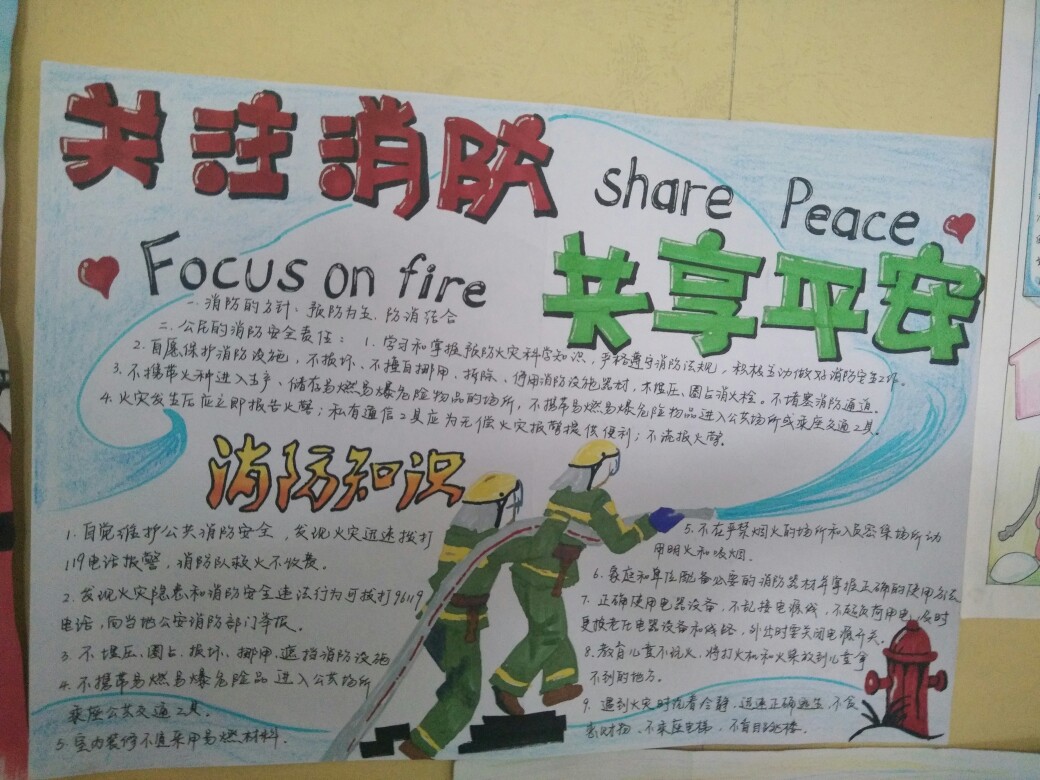 关注消防
share Peace
Focus on fire
共享平安
一.消防的方针、预防为主、防消结合
二.公民的消防安全责任：1.学习和掌握预防火灾科学知识，严格遵守消防法规，积极主动做好消防安全工作。
2.自愿保护消防设施，不损坏、不擅自挪用、拆除、停用消防设施器材，不埋压、圈占消火栓。不堵塞消防通道。
3.不携带火种进入生产、储存易燃易爆危险物品的场所，不携带易燃易爆危险物品进入公共场所或乘座交通工具。
4.火灾发生后应立即报告火警；私有通信工具应为无偿火灾报警提供便利；不谎报火警。
消防知识
1.自觉维护公共消防安全，发现火灾迅速拨打
119电话报警，消防队救火不收费。
2.发现火灾隐患和消防安全违法行为可拨打96119
电话，向当地公安消防部门举报。
3.不埋压、圈占、损坏、挪用、遮挡消防设施
4.不携带易燃易爆危险品进入公共场所
乘座公共交通工具。
5.室内装修不宜采用易燃材料.
5.不在严禁烟火的场所和人员密集场所动
用明火和吸烟.
6.家庭和单位配备必要的消防器材并掌握正确的使用方法
7.正确使用电器设备，不乱接电源线，不超负荷用电，及时
更换老化电器设备和线路，外出时要关闭电源开关。
8.教育儿童不玩火，将打火机和火柴放到儿童拿
不到的地方。
9.遇到火灾时沉着冷静，迅速正确逃生，不贪
恋财物、不乘座电梯、不盲目跳楼.